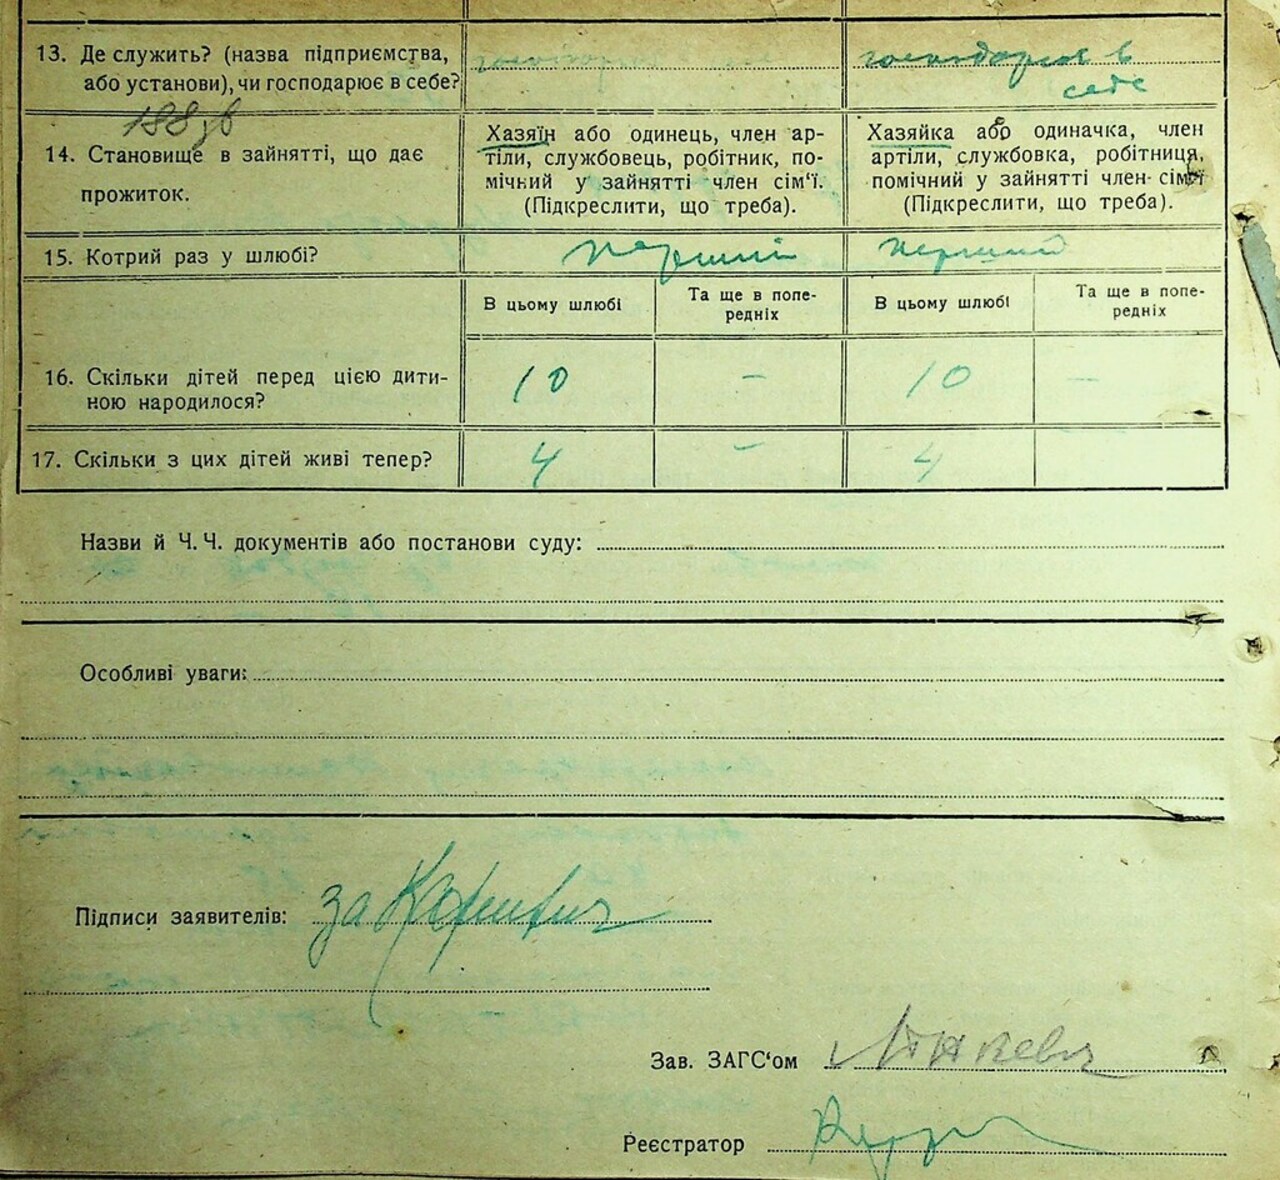 13. Де служить? (назва підприємства,
або установи), чи господарює в себе?
господарює в
себе
14. Становище в зайнятті, що дає
прожиток.
Хазяїн або одинець, член ар-
тіли, службовець, робітник, по-
мічний у зайнятті член сім‘ї.
(Підкреслити, що треба).
Хазяйка або одиначка, член
артіли, службовка, робітниця,
помічний у зайнятті член сім‘ї
(Підкреслити, що треба).
15. Котрий раз у шлюбі?
перший
перший
В цьому шлюбі
Та ще в попе-
редніх
В цьому шлюбі
Та ще в попе-
редніх
16. Скільки дітей перед цією дити-
ною народилося?
10
-
10
-
17. Скільки з цих дітей живі тепер?
4
-
4
Назви й Ч. Ч. документів або постанови суду:
Особливі уваги:
Підписи заявителів: за
Зав. ЗАГС‘ом
Реєстратор